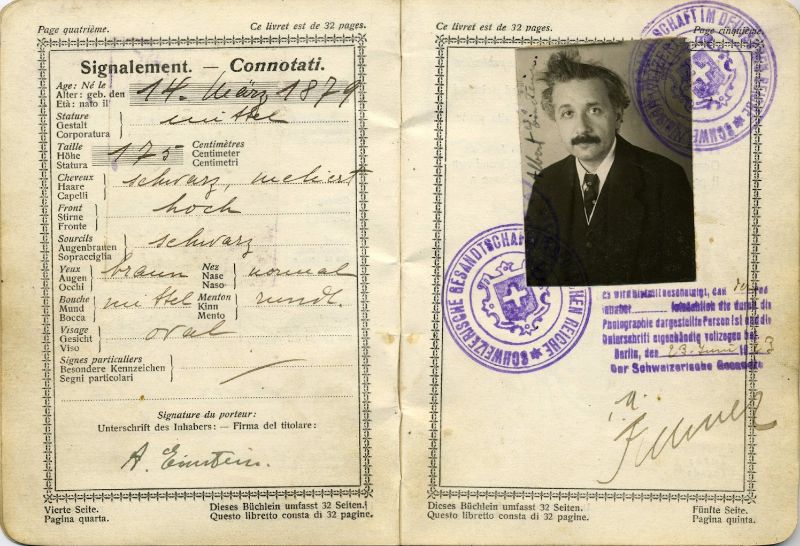 Page quatrième. Ce livret est de 32 pages.
Signalement. — Connotati.
Age: Né le
Alter: geb. den 14. März 1879
Età: nato il
Stature
Gestalt mittel
Corporatura
Taille Centimètres
Höhe 175 Centimeter
Statura Centimetri
Cheveux
Haare schwarz, meliert
Capelli
Front
Stirne hoch
Fronte
Sourcils
Augenbrauen schwarz
Sopracciglia
Yeux Nez
Augen braun Nase normal
Occhi Naso
Bouche Menton
Mund mittel Kinn rund.
Bocca Mento
Visage
Gesicht oval
Viso
Signes particuliers
Besondere Kennzeichen /
Segni particolari
Signature du porteur:
Unterschrift des Inhabers: — Firma del titolare:
A. Einstein.
Vierte Seite. Dieses Büchlein umfasst 32 Seiten.
Pagina quarta. Questo libretto consta di 32 pagine.
Ce livret est de 32 pages. Page cinquième.
SCHWEIZERISCHE GESANDTSCHAFT IM DEUTSCHEN REICHE
Albert Einstein
SCHWEIZERISCHE GESANDTSCHAFT IM DEUTSCHEN REICHE
Es wird hiermit bescheinigt, dass der
Inhaber die durch die
Photographie dargestellte Person ist und die
Unterschrift eigenhändig vollzogen hat.
Berlin, den 23. Juni 1923
Der Schweizerische Gesandte
Dieses Büchlein umfasst 32 Seiten. Fünfte Seite.
Questo libretto consta di 32 pagine. Pagina quinta.